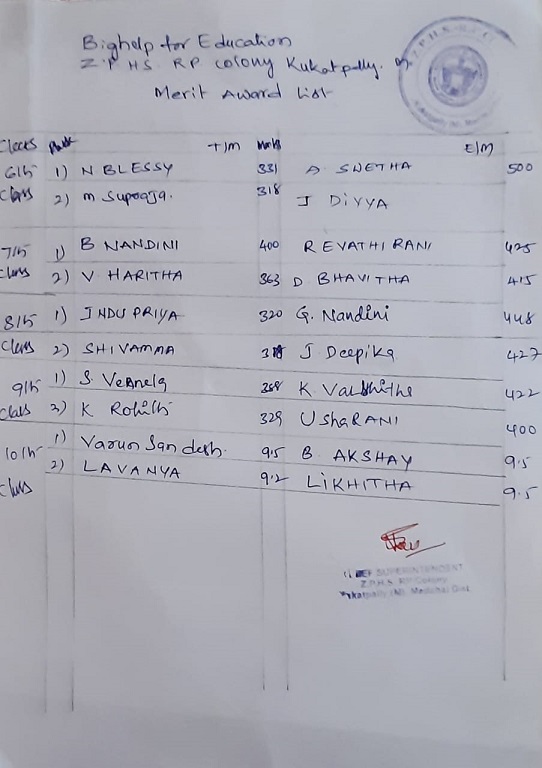 Bighelp for Education
Z.P.H.S. RP colony Kukatpally. m
Merit Award List
class Rank T/M Marks E/M
6th 1) N BLESSY 331 A SWETHA 500
Class 2) m Supraja. 318 J DIVYA
7th 1) B NANDINI 400 REVATHI RANI 425
Class 2) V HARITHA 363 D BHAVITHA 415
8th 1) INDU PRIYA 320 G. Nandini 448
Class 2) SHIVAMMA J Deepika 427
9th 1) S. Vennela K. 422
class 2) K Rohith 329 USHARANI 400
10th 1) Varun Sandesh. 9.5 B. AKSHAY 9.5
class 2) LAVANYA 9.2 LIKHITHA 9.5
CHIEF SUPERINTENDENT
Z.P.H.S. RP Colony
Kukatpally (M), Medchal Dist.